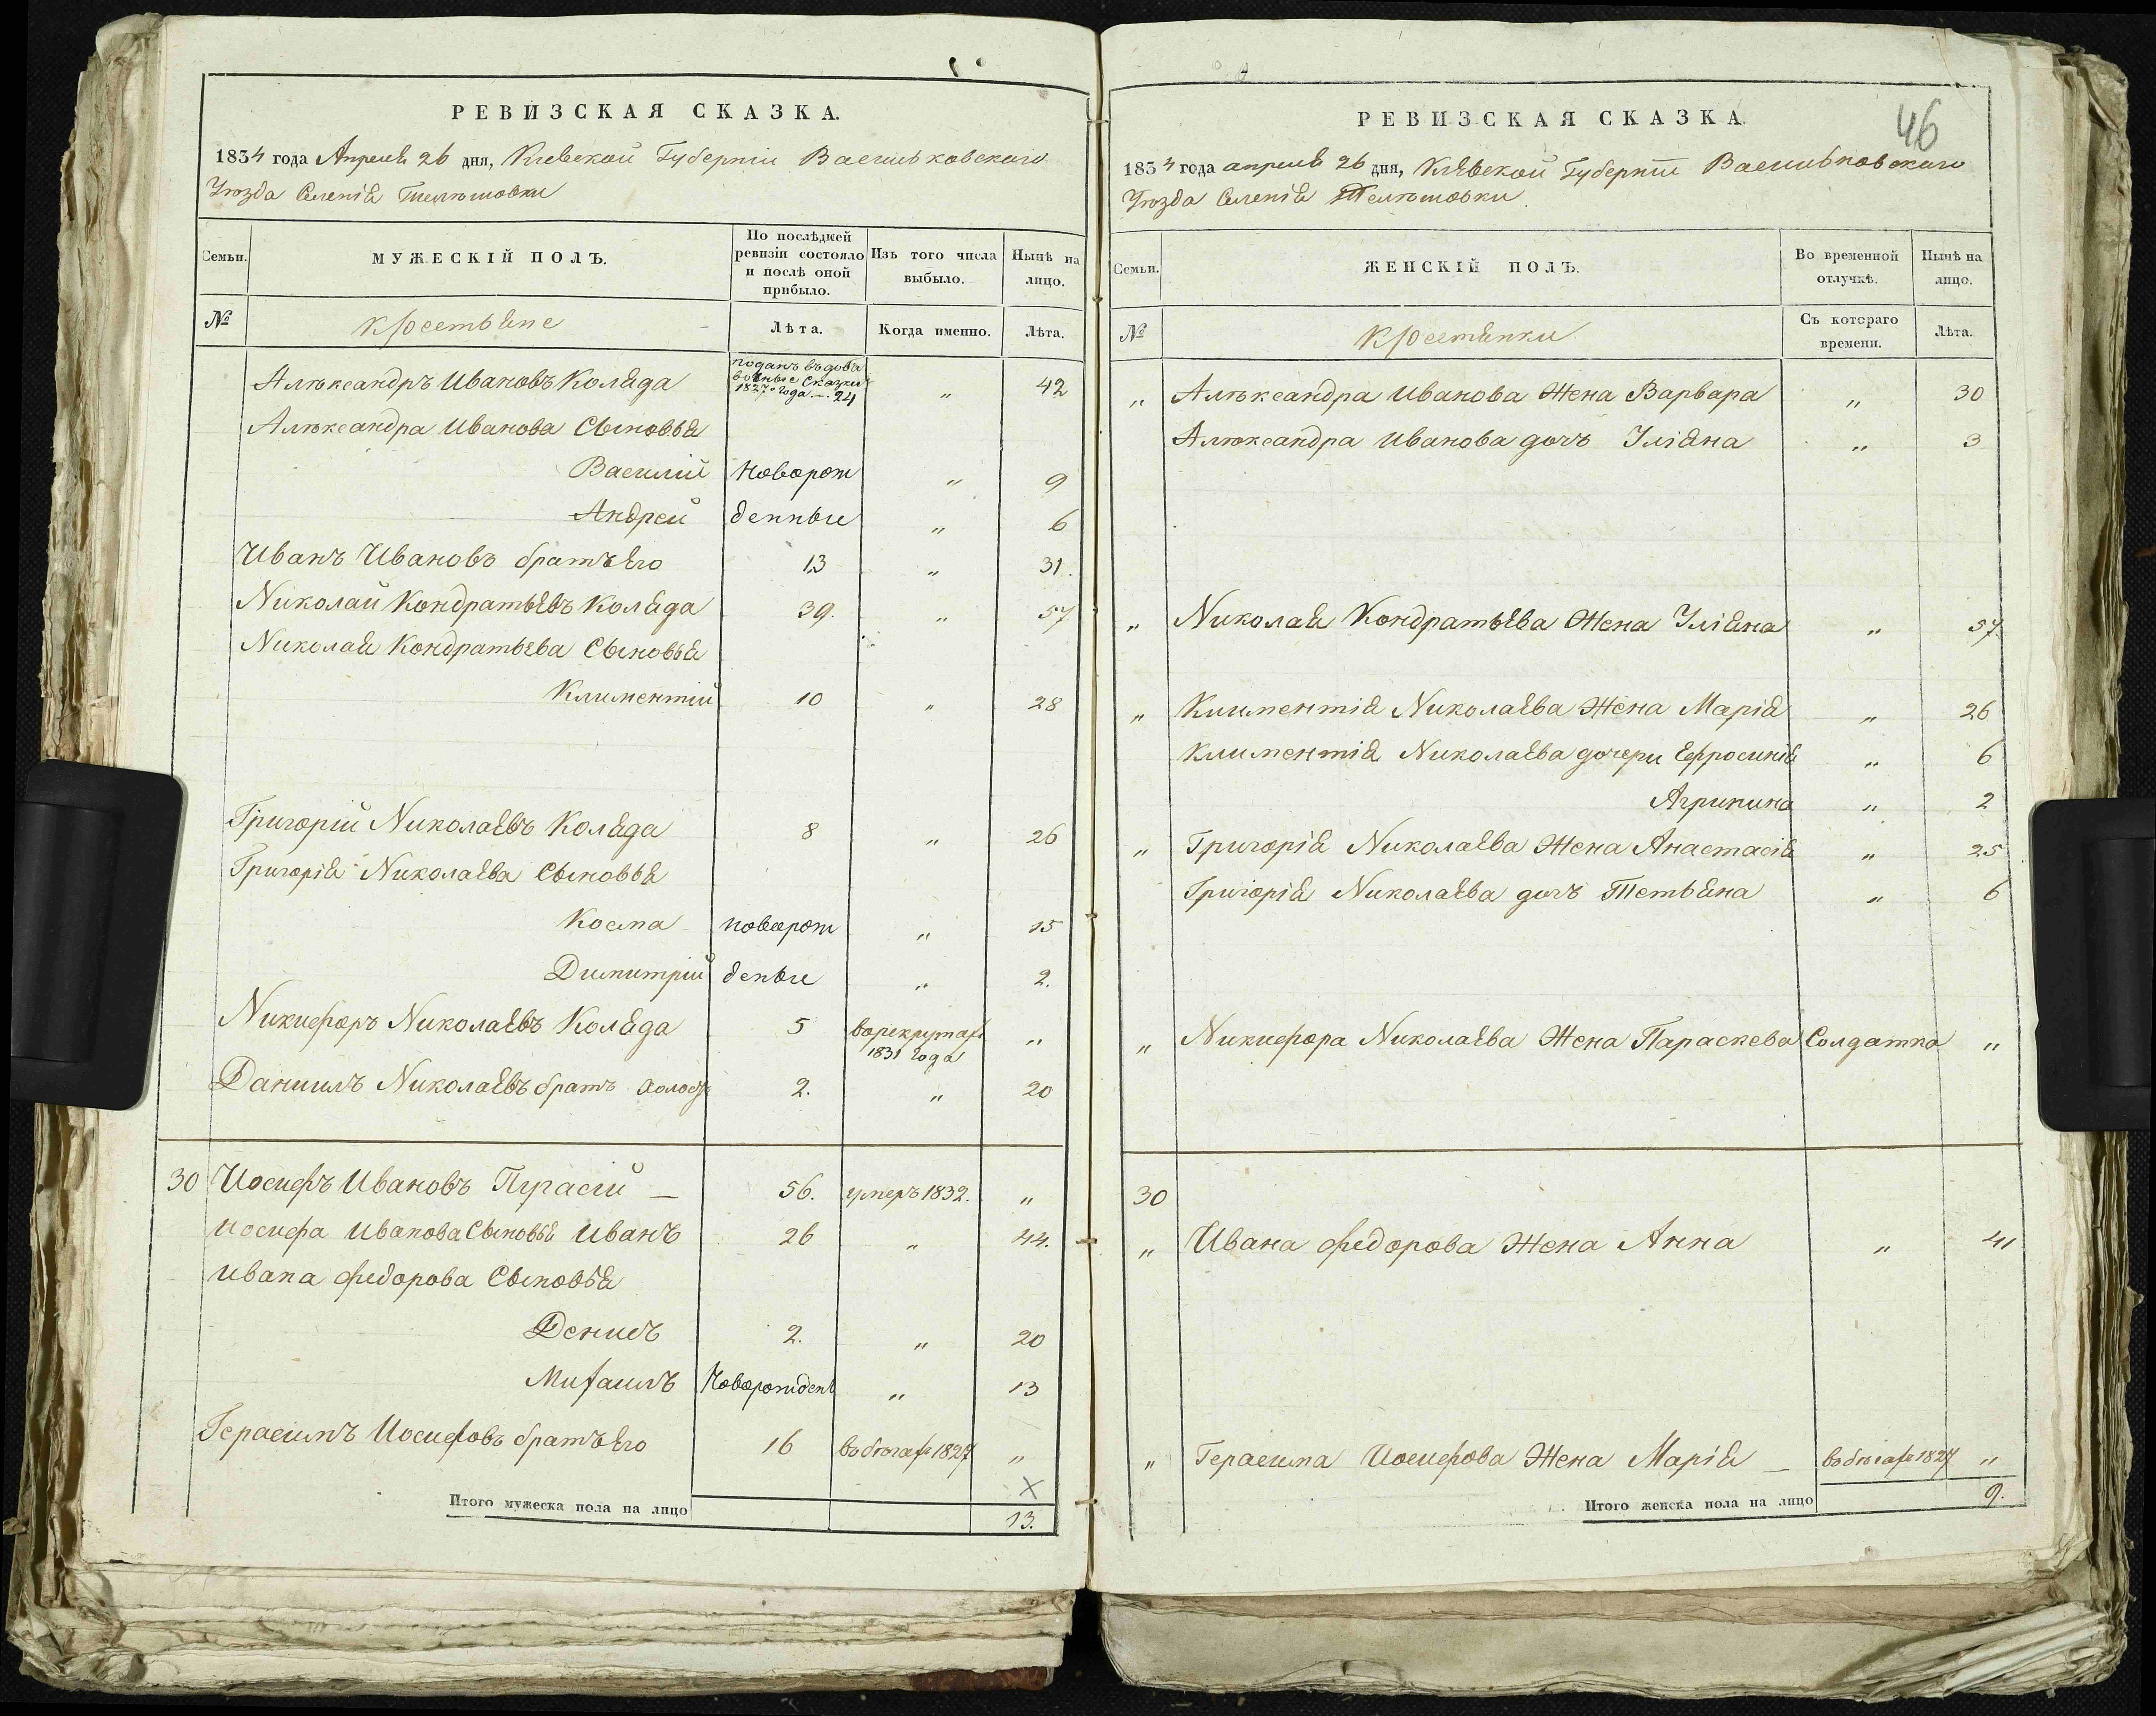 РЕВИЗСКАЯ СКАЗКА.
1834 года Апреля 26 дня, Киевской Губерніи Васильковскаго
Уюзда Селенія Телюшовки
Семьи. МУЖЕСКІЙ ПОЛЪ. По послѣдней ревизіи состояло и послѣ оной прибыло. Изъ того числа выбыло. Нынѣ на лицо.
№ крестьяне Лѣта. Когда именно. Лѣта.
Алюксандръ Ивановъ Коляда поданъ въ доба вочные сказки 1827го года.—.24 „ 42
Алюксандра Иванова Сыновья
Василій Новорож „ 9
Андрей денные „ 6
Иванъ Ивановъ братъ Его 13 „ 31.
Николай Кондратьевъ Коляда 39. „ 57
Николая Кондратьева Сыновья
Климентій 10 „ 28
Григорій Николаевъ Коляда 8 „ 26
Григорія Николаева Сыновья
Косма новорож „ 15
Димитрій деные „ 2.
Никифоръ Николаевъ Коляда 5 ворекрутах 1831 года „
Даниилъ Николаевъ братъ 2. „ 20
30 Иосифъ Ивановъ — 56. умеръ 1832. „
Иосифа Иванова Сыновья Иванъ 26 „ 44.
Ивана Федорова Сыновья
Денисъ 2. „ 20
Михаилъ Новорожден „ 13
Герасимъ Иосифовъ братъ Его 16 вобюгах 1827 „
×
Итого мужеска пола на лицо 13.
46
РЕВИЗСКАЯ СКАЗКА.
1834 года апреля 26 дня, Киевской Губерніи Васильковскаго
Уюзда Селенія Телюшовки.
Семьи. ЖЕНСКІЙ ПОЛЪ. Во временной отлучкѣ. Нынѣ на лицо.
№ Крестянки Съ котораго времени. Лѣта.
„ Алюксандра Иванова Жена Варвара „ 30
Алюксандра Иванова дочъ Уліяна „ 3
„ Николая Кондратьева Жена Уліяна „ 57.
„ Климентія Николаева Жена Марія „ 26
Климентія Николаева дочери Ефросинія „ 6
Агрипина „ 2
„ Григорія Николаева Жена Анастасія „ 25
Григорія Николаева дочъ Тетьяна „ 6
„ Никифора Николаева Жена Параскева Солдатка „
30
„ Ивана Федорова Жена Анна „ 41
„ Герасима Иосифова Жена Марія — вобюгах 1827 „
Итого женска пола на лицо 9.